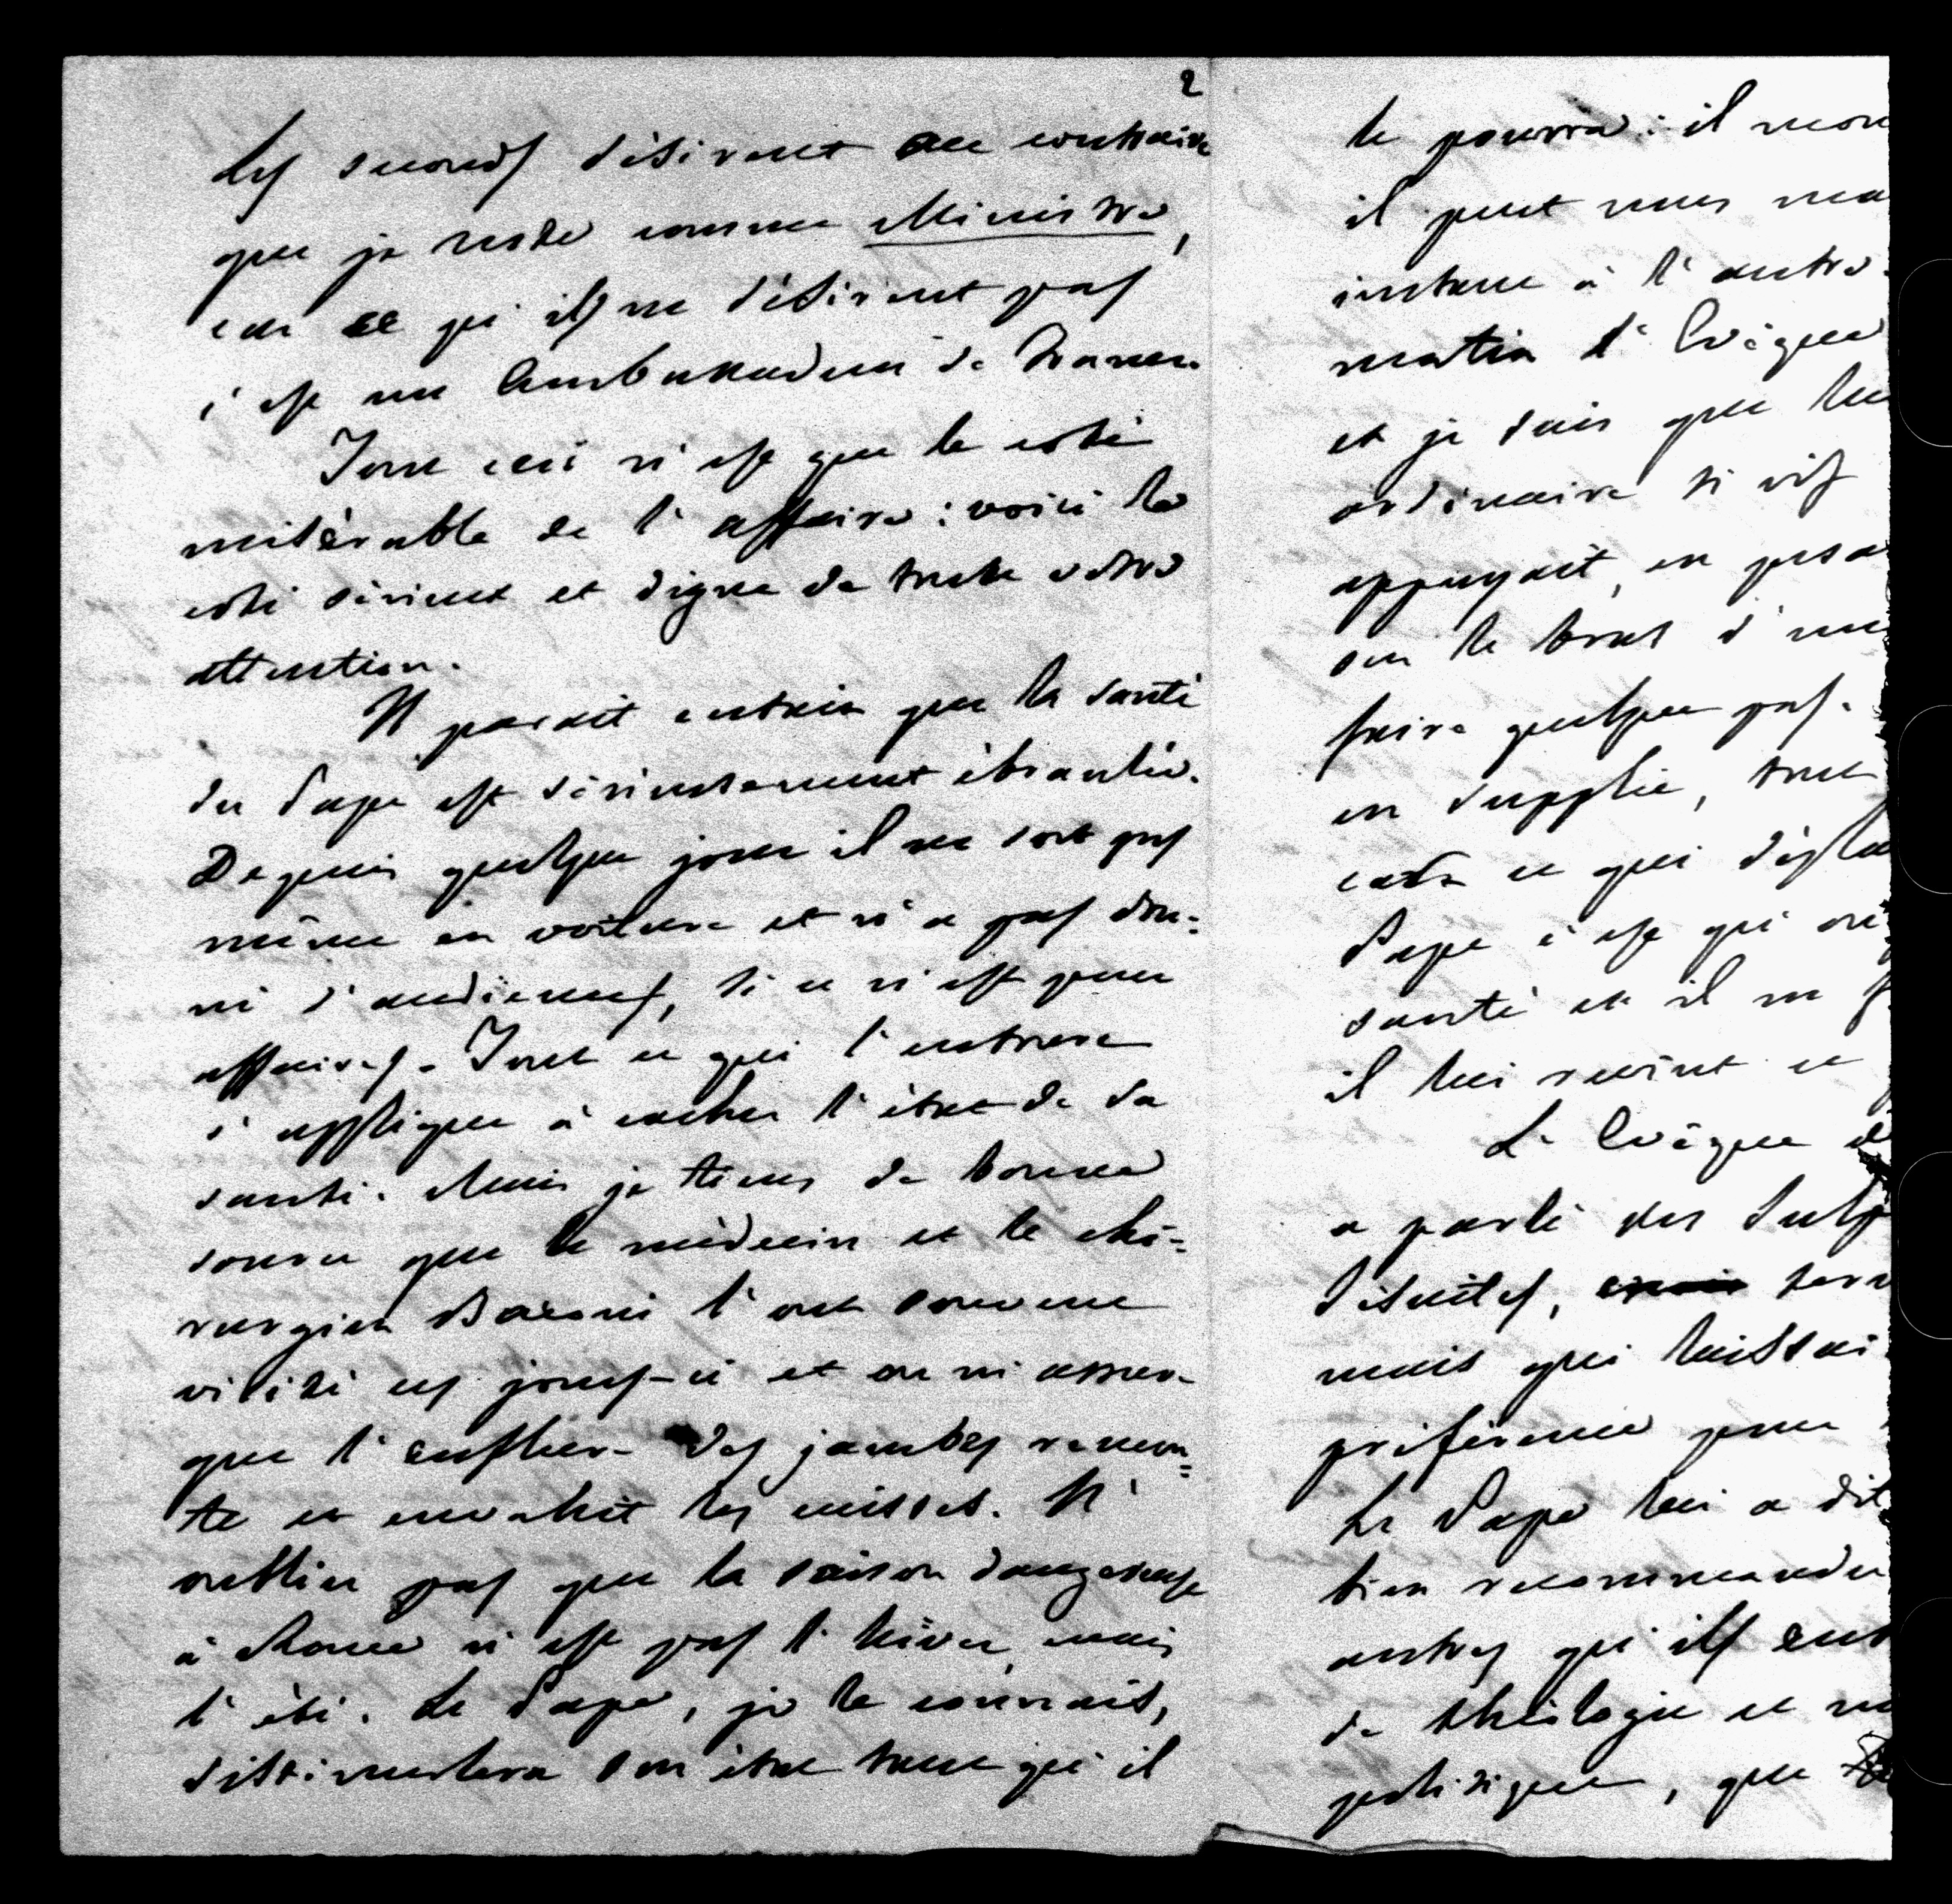 2
Les seconds désirent au contraire
que je reste comme Ministre,
car ce qu'ils ne désirent pas
c'est un Ambassadeur de France.
Tout ceci n'est que le coté
misérable de l'affaire : voici le
coté sérieux et digne de toute votre
attention.
Il parait certain que la santé
du Pape est sérieusement ébranlée.
Depuis quelque jours il ne sort pas
même en voiture et n'a pas don-
né d'audiences, si ce n'est pour
affaires. Tout ce qui l'entoure
s'applique à cacher l'état de sa
santé. Mais je tiens de bonne
source que le médecin et le chi-
rurgien Baroni l'ont souvent
visité ces jours-ci et on m'assure
que l'enflure des jambes remon-
te et envahit les cuisses. N'
oubliez pas que la saison dangereuse
à Rome n'est pas l'hiver, mais
l'été. Le Pape, je le connais,
dissimulera son état tant qu'il
le pourra : il mon
il peut nous ma
instant à l'autre.
matin l'Evêque
et je sais que le
ordinaire si vif
appuyait, en
sur le bras d'un
faire quelques pas.
en supplie, tout
car ce qui
Pape c'est qu'on
santé et il ne
il lui revint ce
L'Evêque
a parlé des Sulp
Jésuites,
mais qui laissai
préférence pour
Le Pape lui a dit
bien recommander
autres qu'ils
de théologie et
politique, que